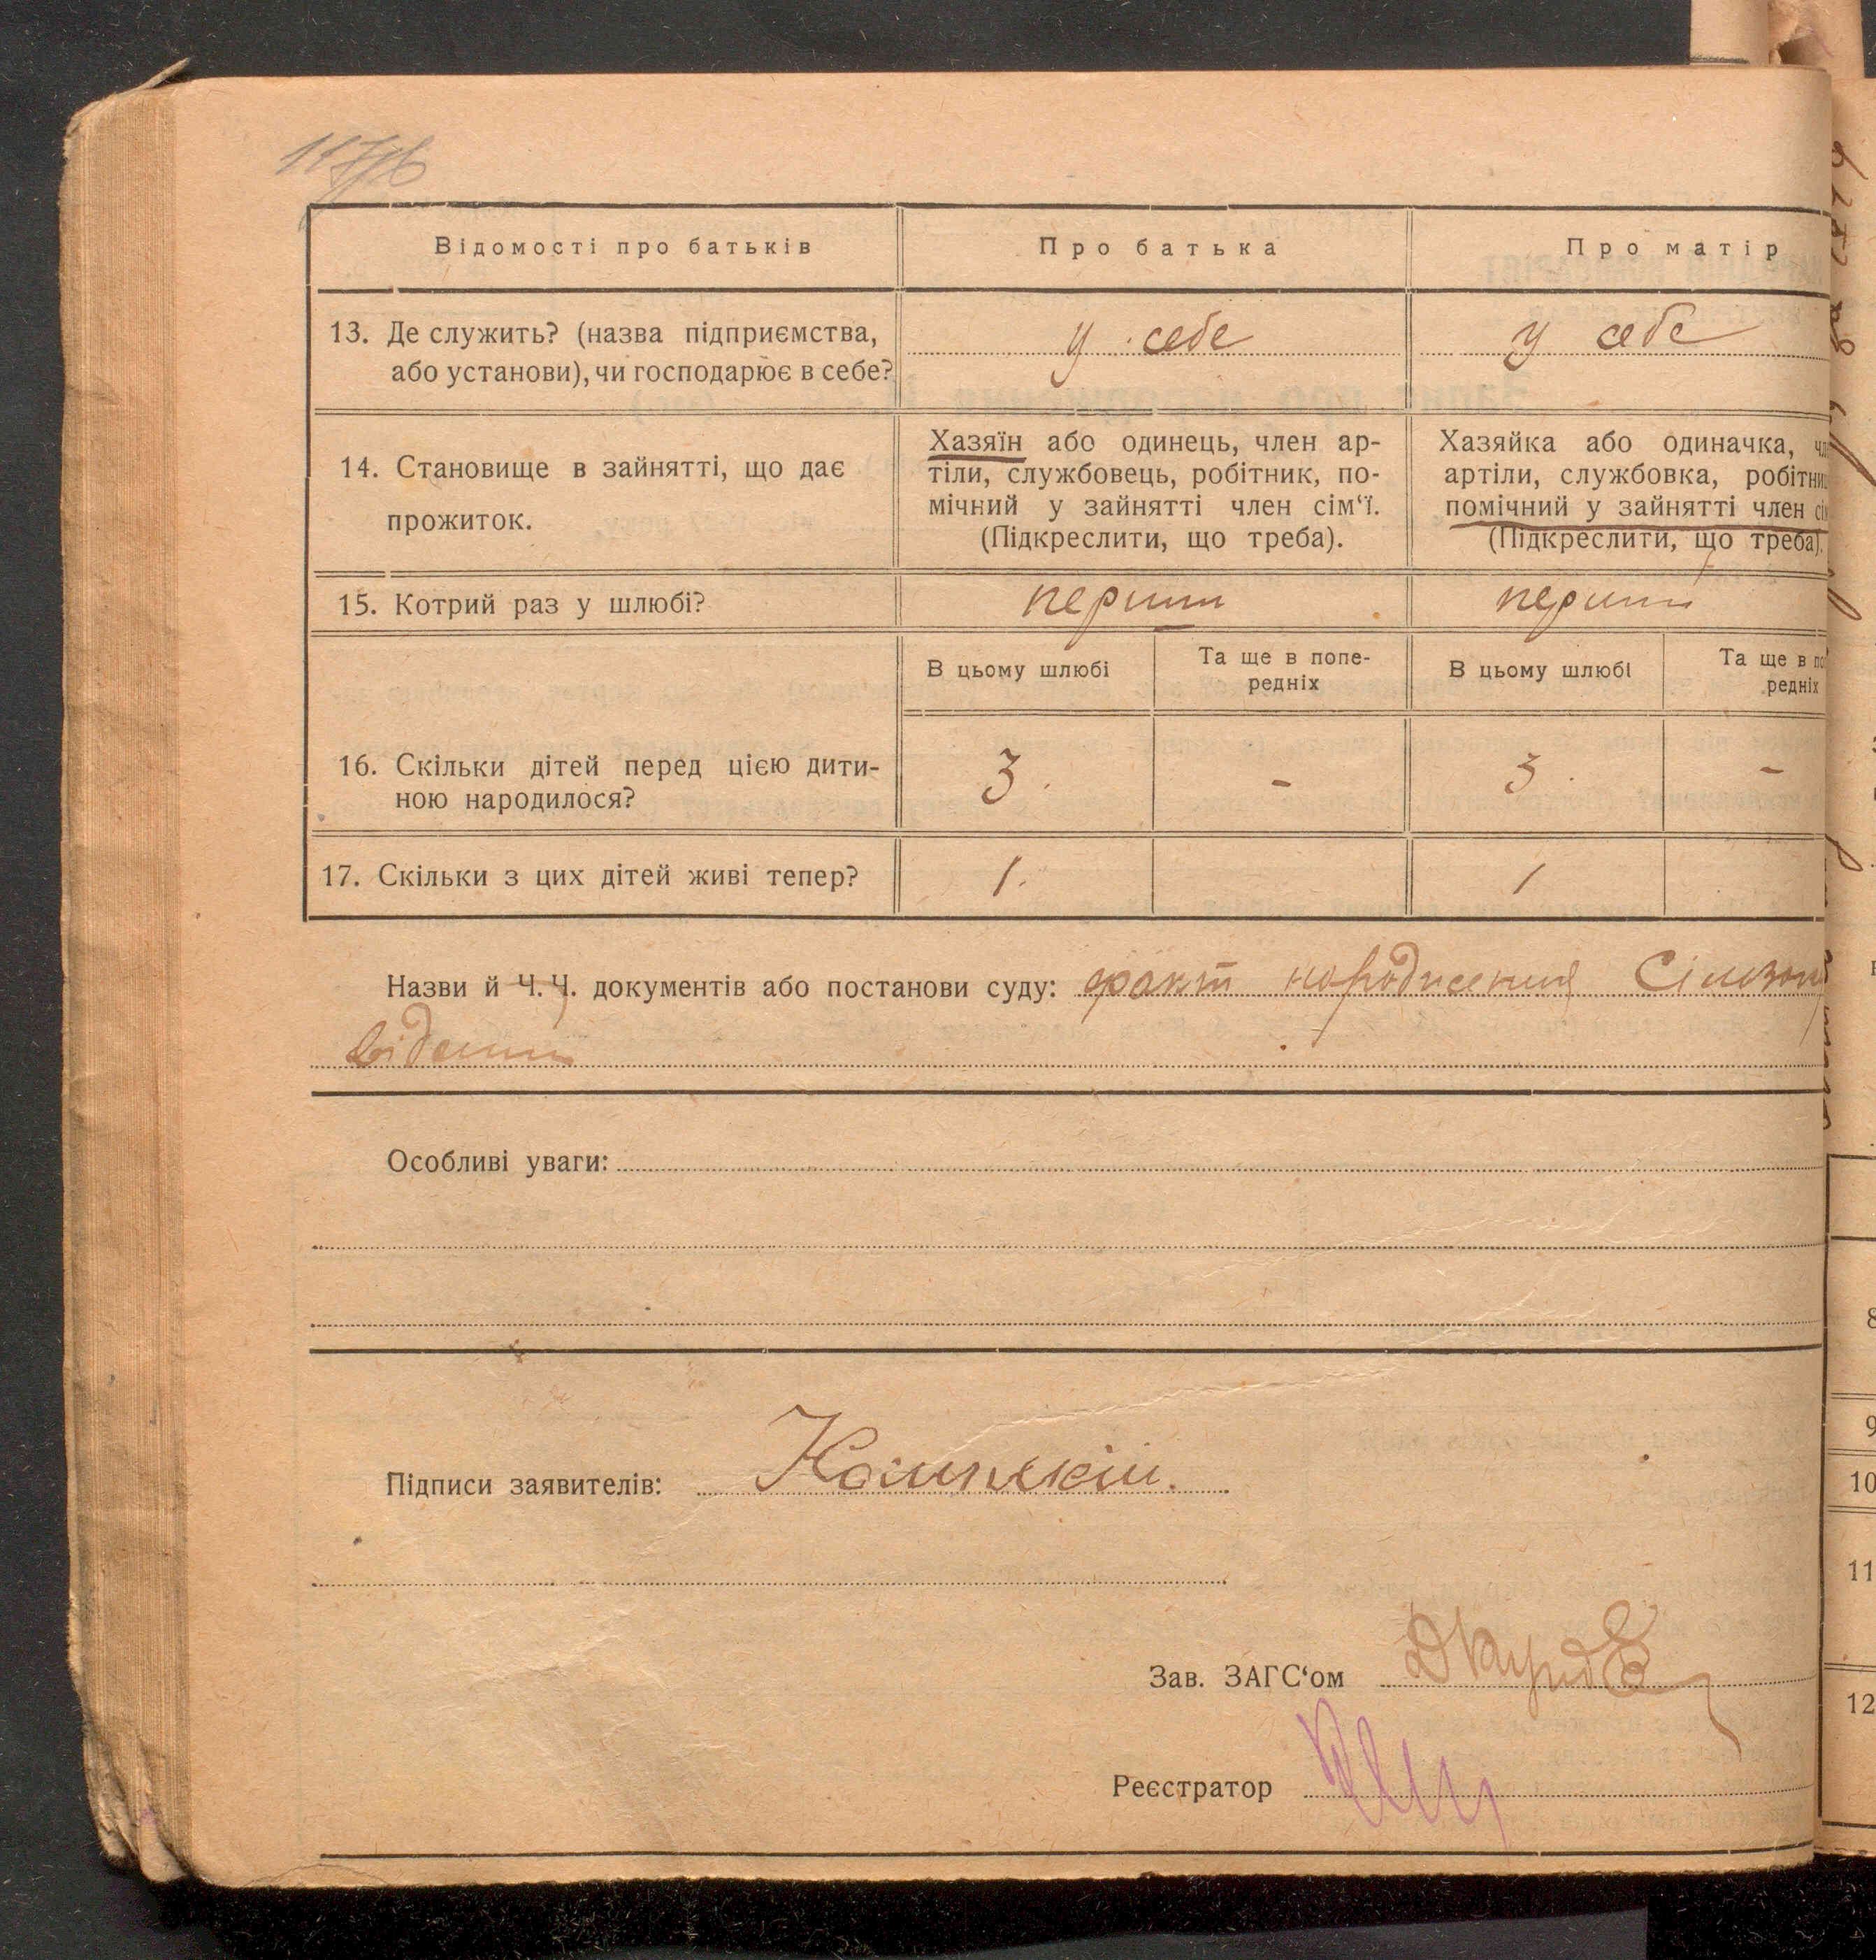 Відомості про батьків Про батька Про матір
13. Де служить? (назва підприємства, або установи), чи господарює в себе? у себе у себе
14. Становище в зайнятті, що дає прожиток.
Хазяїн або одинець, член ар-
тіли, службовець, робітник, по-
мічний у зайнятті член сім‘ї.
(Підкреслити, що треба).
Хазяйка або одиначка,
артіли, службовка,
помічний у зайнятті член
(Підкреслити, що треба).
15. Котрий раз у шлюбі? перший перший
В цьому шлюбі Та ще в попе-
редніх В цьому шлюбі Та ще в
редніх
16. Скільки дітей перед цією дити-
ною народилося? 3 - 3 -
17. Скільки з цих дітей живі тепер? 1 1
Назви й Ч.Ч. документів або постанови суду: факт народження
відомий
Особливі уваги:
Підписи заявителів:
Зав. ЗАГС‘ом
Реєстратор
8
9
10
11
12